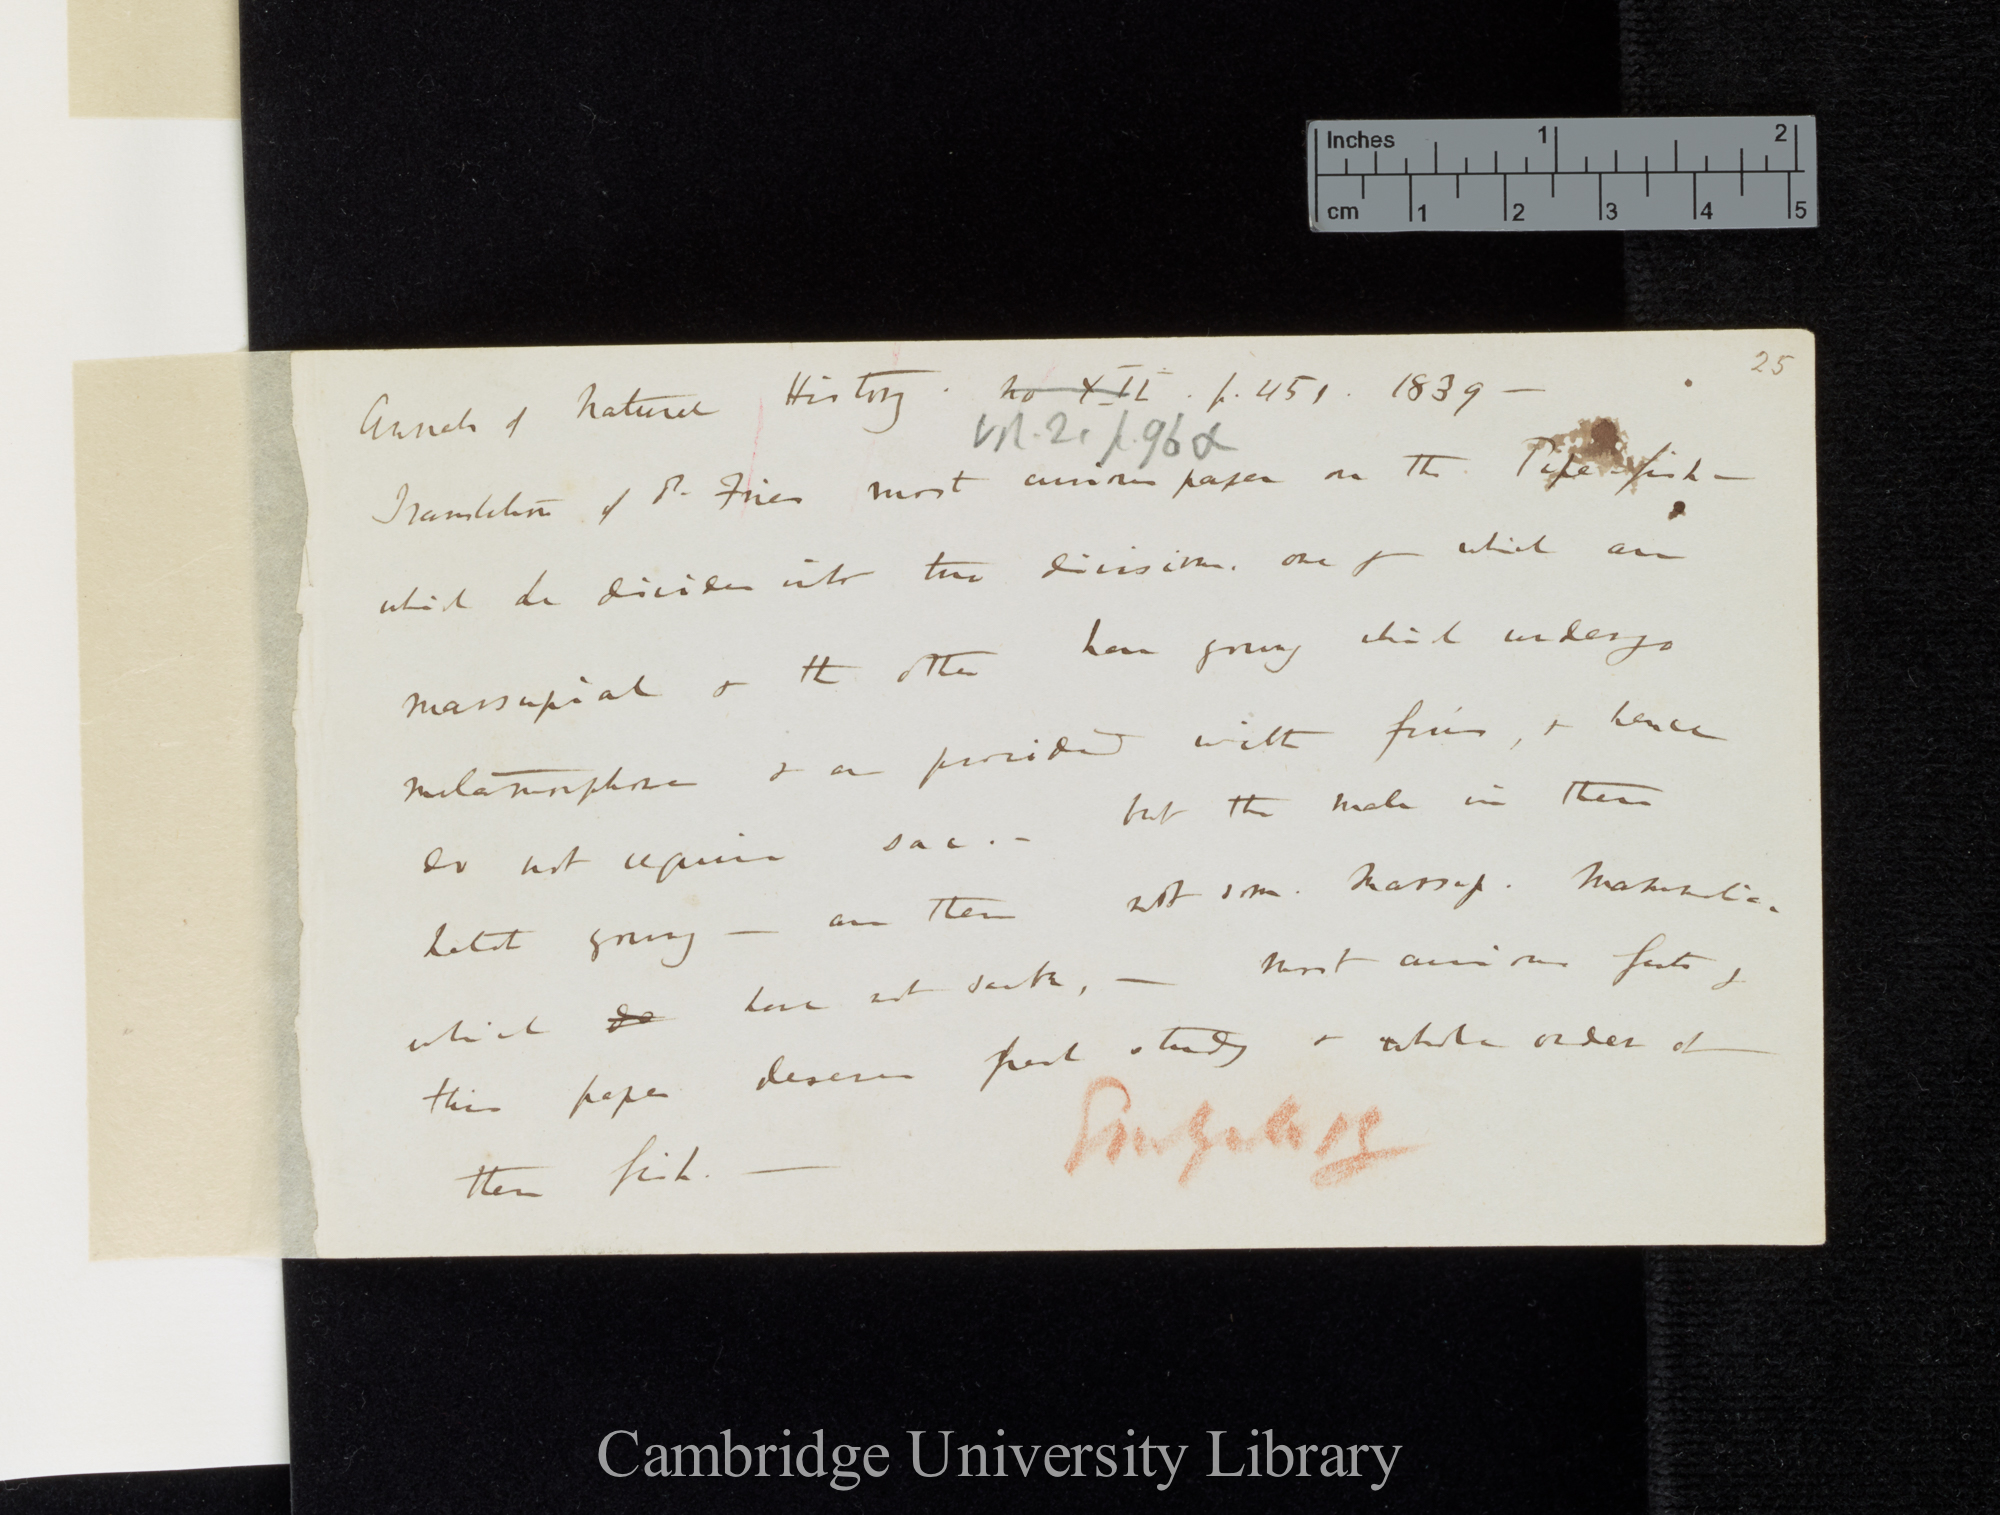 Inches 1 2
cm 1 2 3 4 5
25
Annals of Natural History. no XII. p. 451. 1839 —
Vol. 2. p. 96 &
Translation of Dr. Fries most curious paper on the Pipe-fish —
which he divides into two divisions. one of which are
marsupial & the other have young which undergo
metamorphose & are provided with fins, & hence
do not require sac. — but the male in these
hatch young — are there not some Marsup. Mammalia
which do have not sacks, — most curious facts &
this paper deserves great study & whole order of
these fish. —
Cambridge University Library